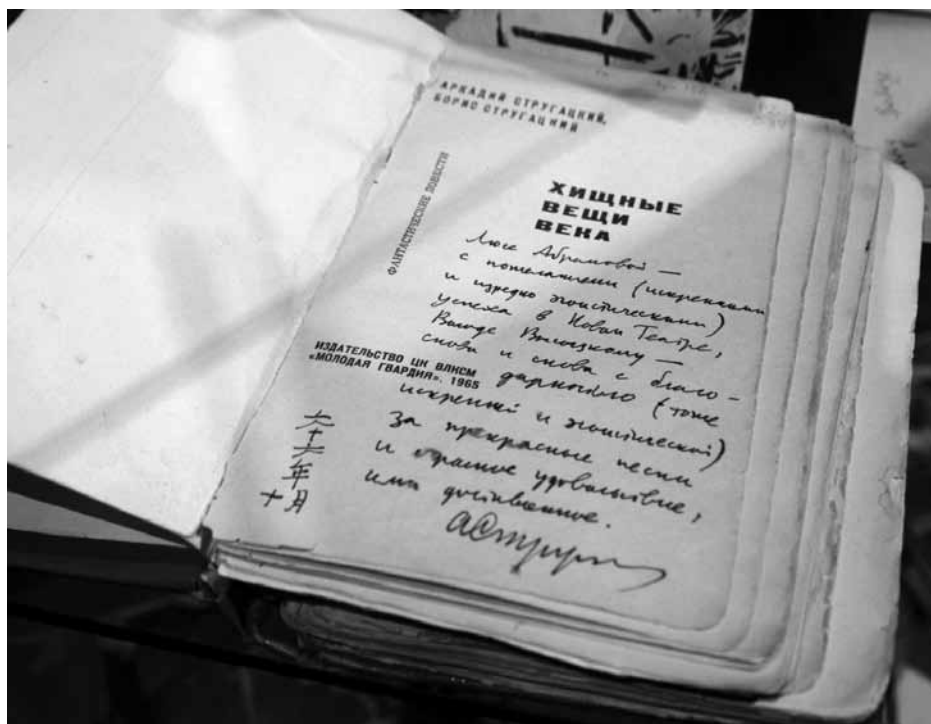 АРКАДИЙ СТРУГАЦКИЙ,
БОРИС СТРУГАЦКИЙ
ФАНТАСТИЧЕСКИЕ ПОВЕСТИ
ХИЩНЫЕ
ВЕЩИ
ВЕКА
Люсе Абрамовой —
с пожеланием (искренними
и изредка эгоистическими)
успеха в Новом Театре,
Володе Высоцкому —
снова и снова с благо-
дарностью (тоже
искренней и эгоистической)
за прекрасные песни
и огромное удовольствие,
ими доставленное.
АСтругацкий
ИЗДАТЕЛЬСТВО ЦК ВЛКСМ
«МОЛОДАЯ ГВАРДИЯ». 1965
六十六年
十月